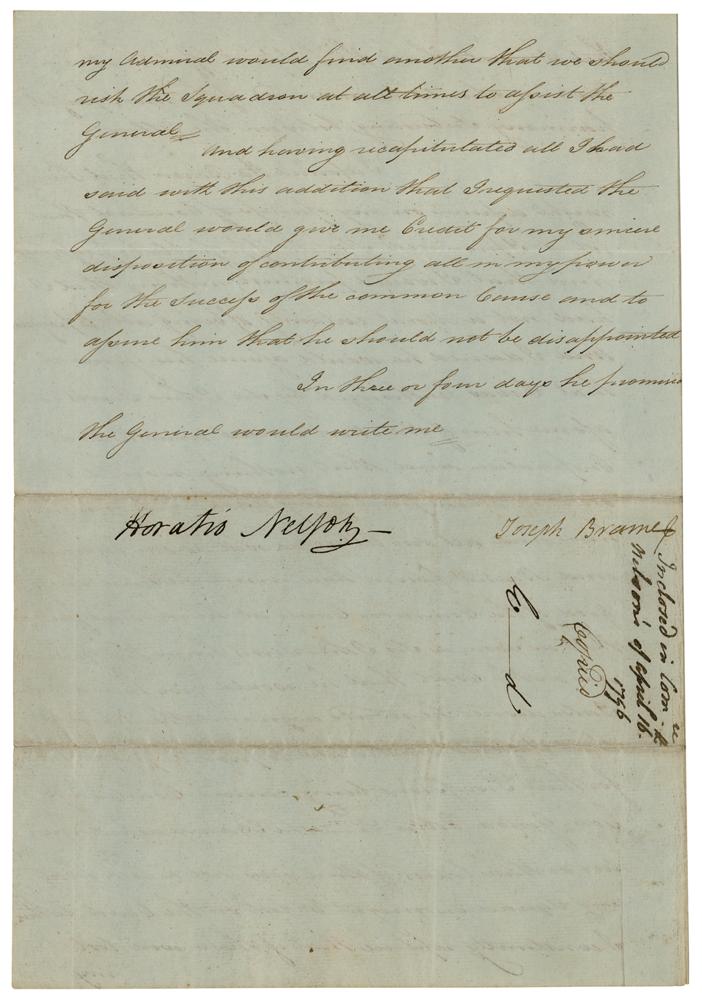 my Admiral would find another that we should
risk the Squadron at all times to assist the
General
And having recapitulated all I had
said with this addition that I requested the
General would give me Credit for my sincere
disposition of contributing all in my power
for the Success of the common Cause and to
assure him that he should not be disappointed
In three or four days he promised
the General would write me
Horatio Nelson
Joseph Brame
Inclosed in Com:re
Nelson's of April 16.th
1796
Copied
C d